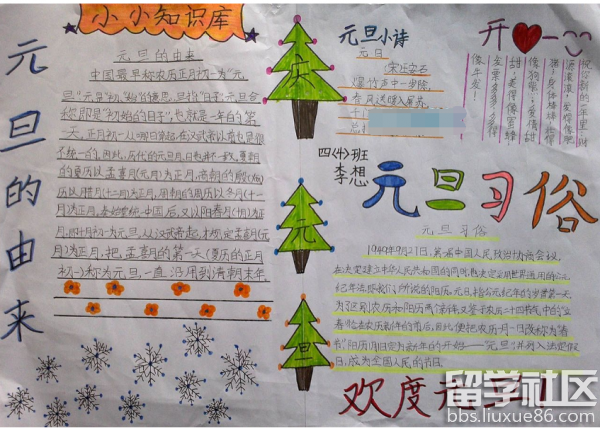 小小知识库
元旦的由来
元旦的由来
中国最早称农历正月初一为"元
旦","元"是"初"、"始"的意思,旦指"日子",元旦合
称即是"初始的日子",也就是一年的第
一天。正月初一从哪日算起,在汉武帝以前也是很
不统一的。因此,历代的元旦月、日也并不一致。夏朝
的夏历以孟喜月(元月)为正月,商朝的殷
历以腊月(十二月)为正月,周朝的周历以冬月(十一
月)为正月。秦始皇统一中国后,又以阳春月(十月)为正
月,即十月初一为元旦。从汉武帝起,才规定孟喜月(元
月)为正月,把孟喜月的第一天(夏历的正月
初一)称为元旦,一直沿用到清朝末年
庆
元
旦
元旦小诗
元日
宋 王安石
爆竹声中一岁除,
春风送暖入屠苏。
千
总
四(4)班
李想
开心一
祝你新的一年里:财
源滚滚,发得像肥
猪;身体棒棒,壮得
像狗熊;爱情甜
甜,美得像蜜蜂;
发票多多,多得
像牛毛!
元旦习俗
元旦习俗
1949年9月27日,第一届中国人民政治协商会议,
在决定建立中华人民共和国的同时,也决定采用世界通用的公元
纪年法,即我们所说的阳历。元旦,指公元纪年的岁首第一天。
为了区别农历和阳历两个新年,又鉴于农历二十四节气中的"立
春"恰在农历新年的前后,因此便把农历正月一日改称为"春
节",阳历一月一日定为新年的开始——"元旦",并列入法定假
日,成为全国人民的节日。
欢度元旦!
留学社区
bbs.liuxue86.com